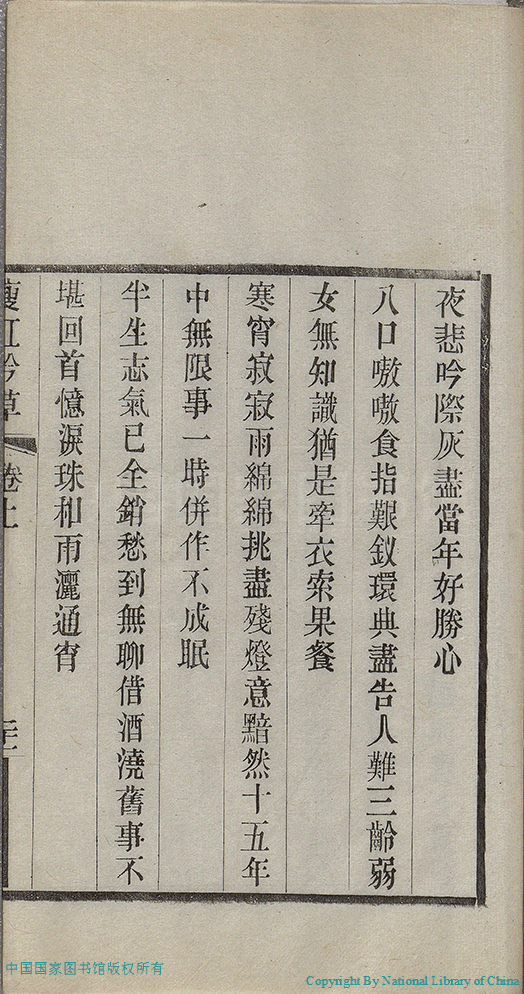 夜悲吟際灰盡當年好勝心
八口嗷嗷食指艱釵環典盡告人難三齡弱
女無知識猶是牽衣索果餐
寒宵寂寂雨綿綿挑盡殘燈意黯然十五年
中無限事一時併作不成眠
半生志氣已全銷愁到無聊借酒澆舊事不
堪回首憶淚珠和雨灑通宵
瘦紅吟草 卷上
中国国家图书馆版权所有
Copyright By National Library of China